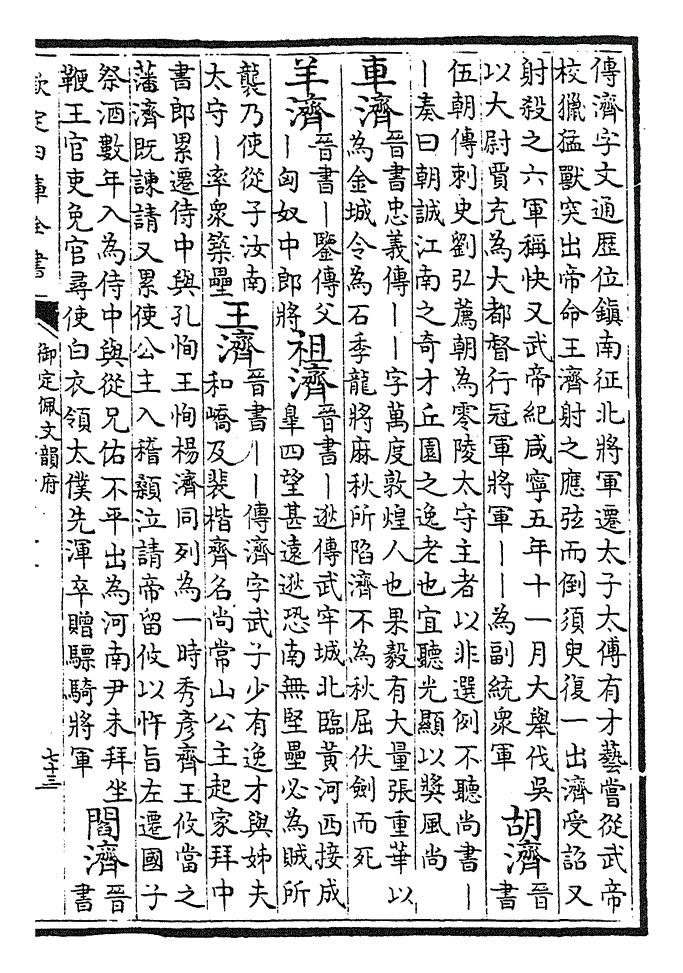 傳濟字文通歴位鎮南征北將軍遷太子太傅有才藝嘗從武帝
校獵猛獸突出帝命王濟射之應弦而倒須臾復一出濟受詔又
射殺之六軍稱快又武帝紀咸寧五年十一月大舉伐吳
以大尉賈充為大都督行冠軍將軍——為副統衆軍
胡濟
晉
書
伍朝傳刺史劉弘薦朝為零陵太守主者以非選例不聽尚書—
—奏曰朝誠江南之奇才丘園之逸老也宜聽光顯以奬風尚
車濟
晉書忠義傳——字萬度敦煌人也果毅有大量張重華以
為金城令為石季龍將麻秋所陷濟不為秋屈伏劍而死
羊濟
晉書—鑒傳父
—匈奴中郎將
祖濟
晉書—逖傳武牢城北臨黄河西接成
皐四望甚遠逖恐南無堅壘必為賊所
襲乃使從子汝南
太守—率衆築壘
王濟
晉書——傳濟字武子少有逸才與姊夫
和嶠及裴楷齊名尚常山公主起家拜中
書郎累遷侍中與孔恂王恂楊濟同列為一時秀彦齊王攸當之
藩濟既諫請又累使公主入稽顙泣請帝留攸以忤旨左遷國子
祭酒數年入為侍中與從兄佑不平出為河南尹未拜坐
鞭王官吏免官尋使白衣領太僕先渾卒贈驃騎將軍
閻濟
晉
書
欽定四庫全書
御定佩文韻府
七十三